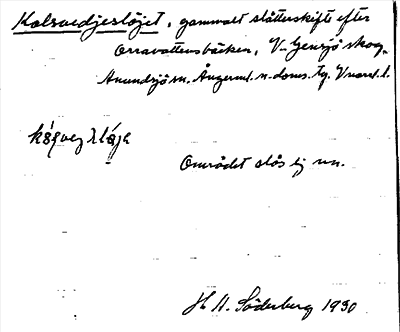 Kolsvedjeslöjet, gammalt slåtterskifte efter
Orravattensbäcken, V. Gensjö skog,
Anundsjö sn. Ångerml. n. doms. tg. Vnorrl. l.
Området slås ej nu.
H. H. Söderberg 1930